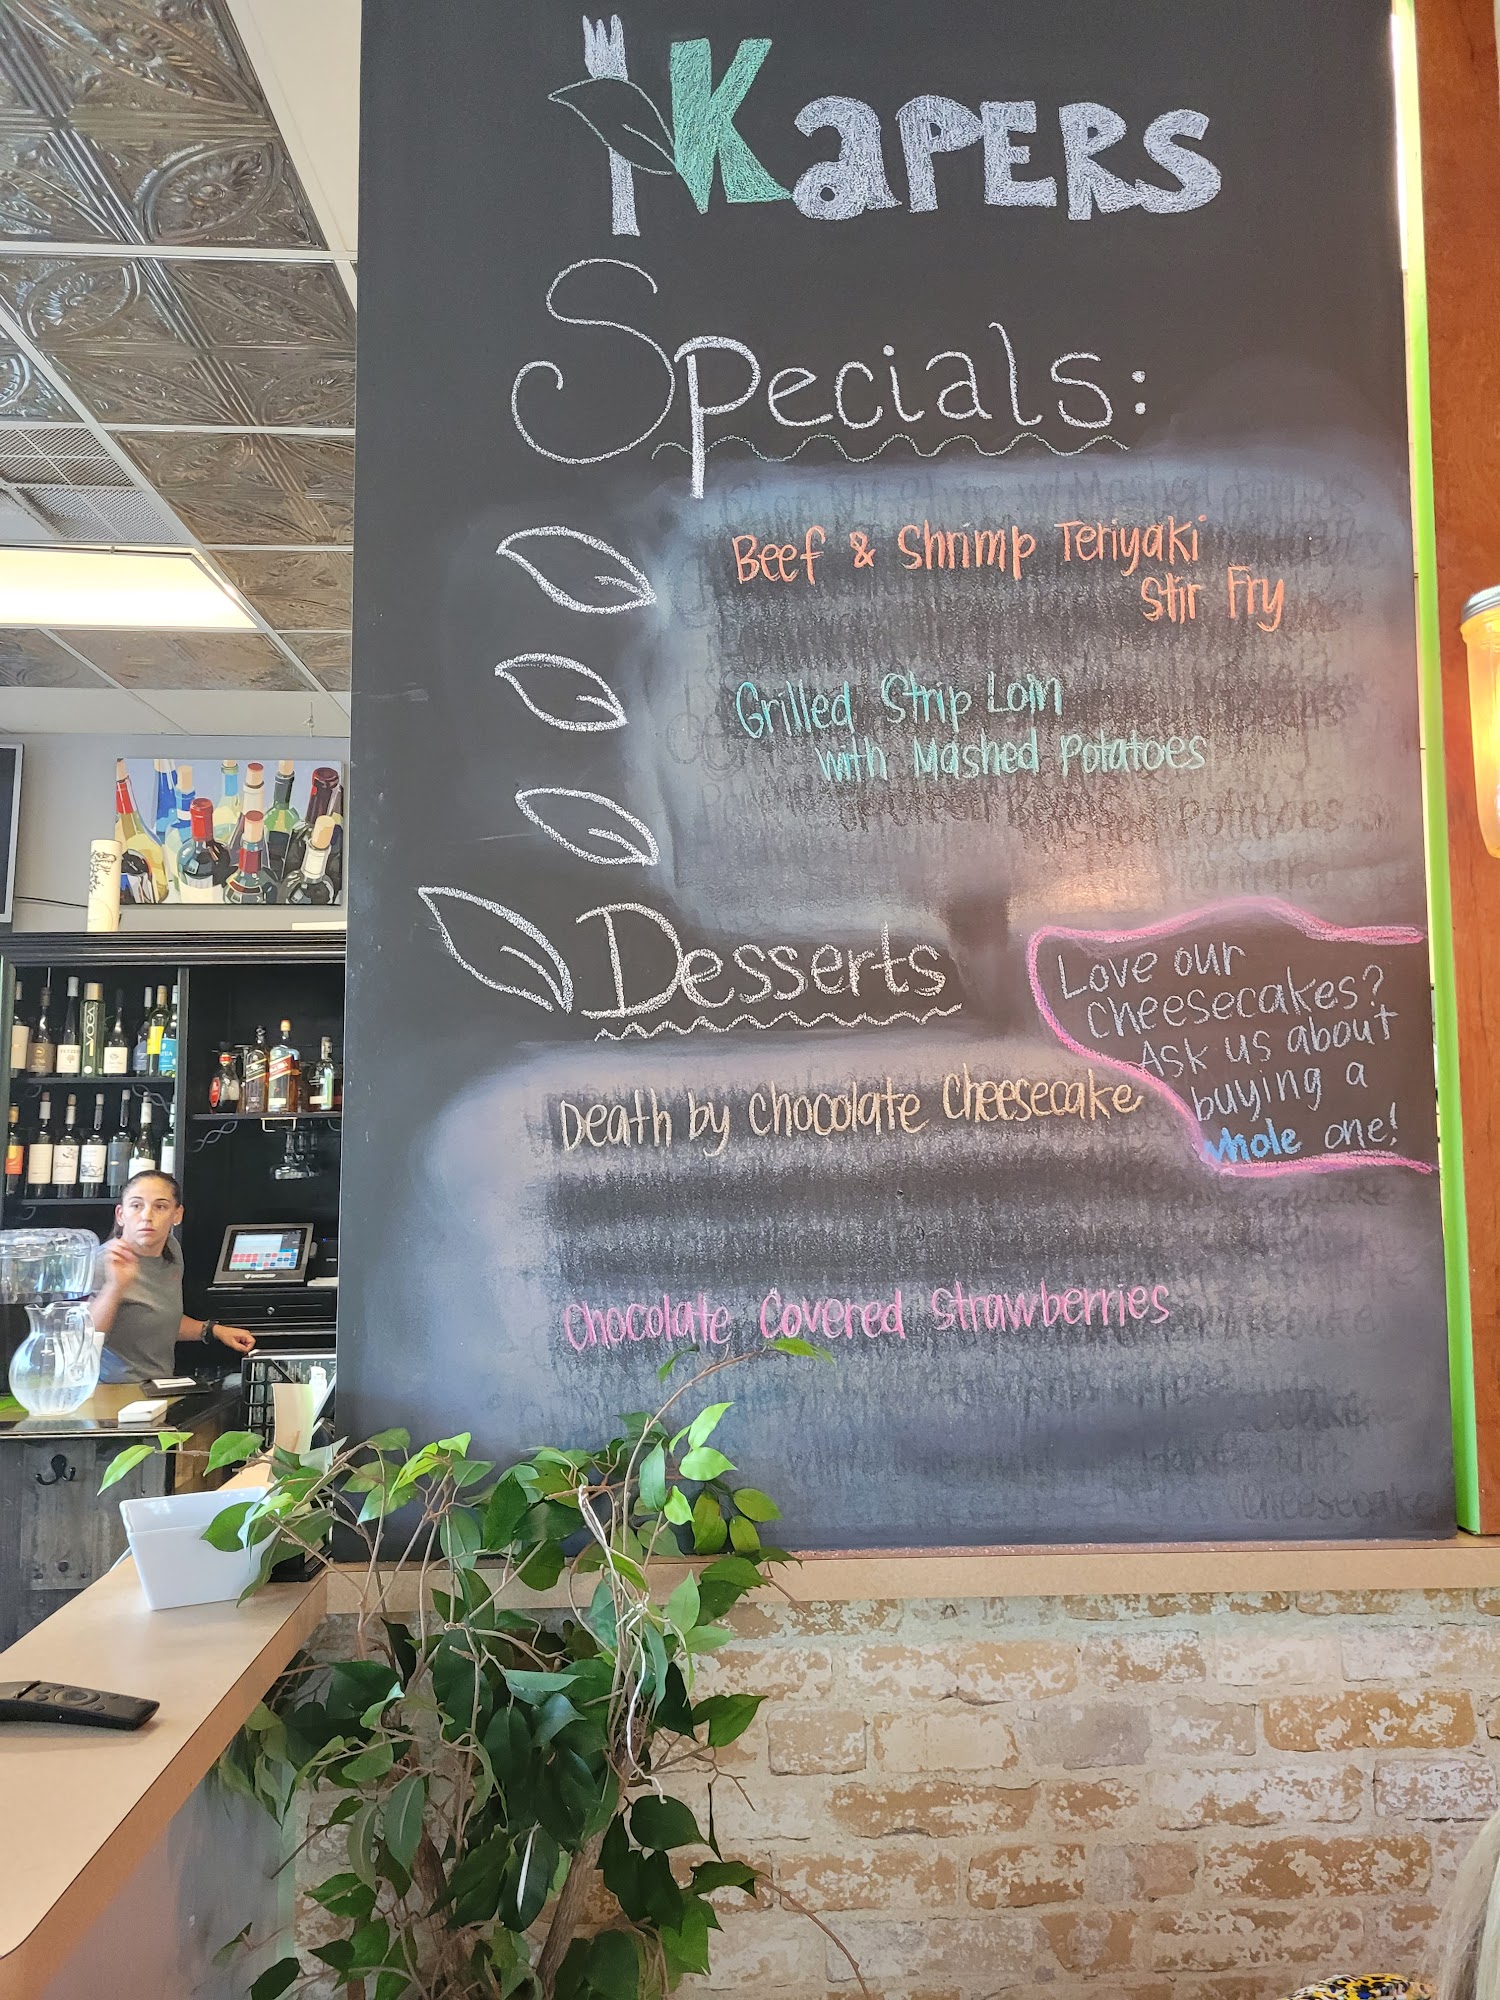 KAPERS
Specials:
Beef & Shrimp Teriyaki
Stir Fry
Grilled Strip Loin
with Mashed Potatoes
Desserts
Love our
cheesecakes?
Ask us about
buying a
whole one!
Death by Chocolate Cheesecake
Chocolate Covered Strawberries